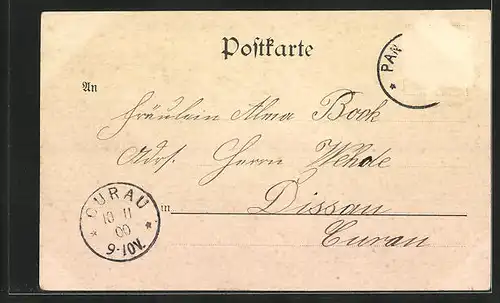 Postkarte
PAN
An
Fräulein Alma Book
Adrs. Herrn Wehde
in Dissau
Curau
CURAU
10 11
00
9-10V.